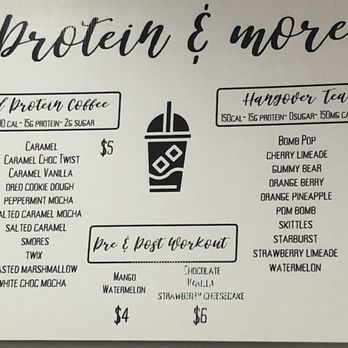 Protein & more
Protein Coffee
CAL- 15G PROTEIN- 2G SUGAR
$5
CARAMEL
CARAMEL CHOC TWIST
CARAMEL VANILLA
OREO COOKIE DOUGH
PEPPERMINT MOCHA
SALTED CARAMEL MOCHA
SALTED CARAMEL
SMORES
TWIX
MARSHMALLOW
WHITE CHOC MOCHA
Hangover Tea
150CAL- 15G PROTEIN- 0SUGAR- 150MG
BOMB POP
CHERRY LIMEADE
GUMMY BEAR
ORANGE BERRY
ORANGE PINEAPPLE
POM BOMB
SKITTLES
STARBURST
STRAWBERRY LIMEADE
WATERMELON
Pre & Post Workout
MANGO
WATERMELON
$4
CHOCOLATE
VANILLA
STRAWBERRY CHEESECAKE
$6